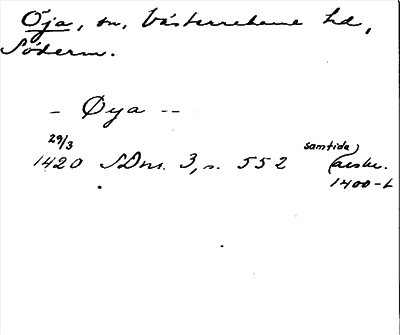 Öja, sn, Västerrekarne hd,
Söderm.
– Øya --
29/3
1420 SDns. 3, s. 552 (samtida) avskr.
1400-t